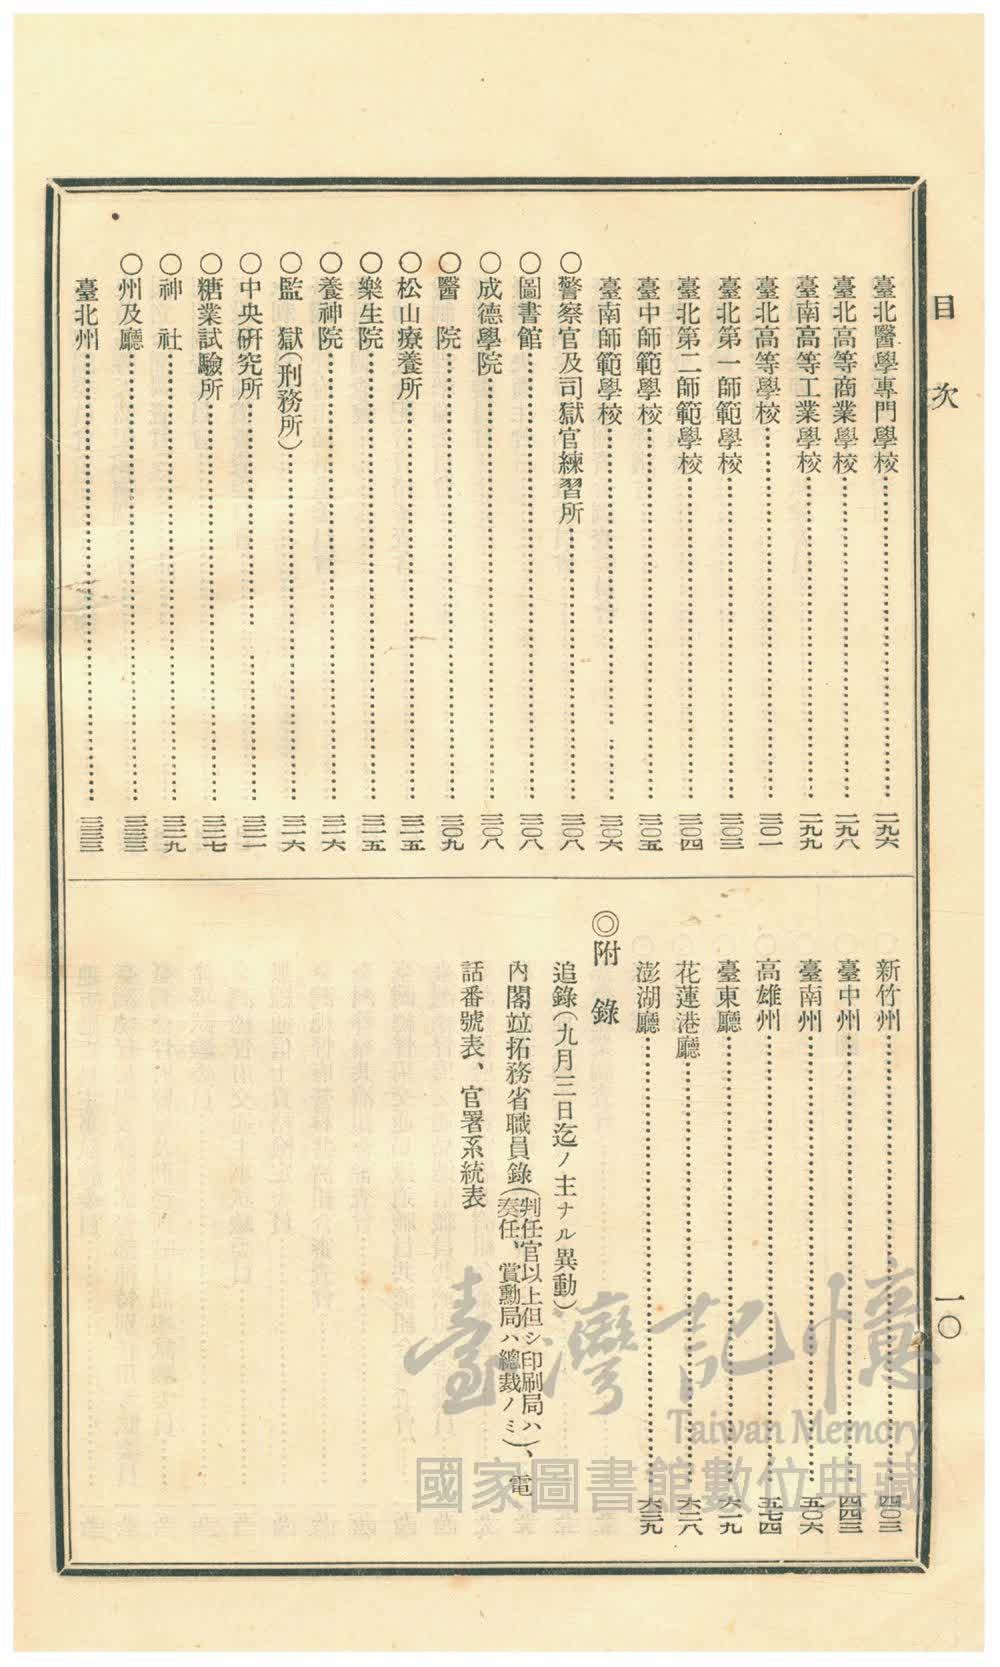 目次
一〇
臺北醫學專門學校……二九六
臺北高等商業學校……二九八
臺南高等工業學校……二九九
臺北高等學校……三〇一
臺北第一師範學校……三〇三
臺北第二師範學校……三〇四
臺中師範學校……三〇五
臺南師範學校……三〇六
〇警察官及司獄官練習所……三〇八
〇圖書館……三〇八
〇成德學院……三〇八
〇醫院……三〇九
〇松山療養所……三一五
〇樂生院……三一五
〇養神院……三一六
〇監獄(刑務所)……三一六
〇中央硏究所……三二一
〇糖業試驗所……三二七
〇神社……三二九
〇州及廳……三三三
臺北州……三三三
新竹州……四〇三
臺中州……四四三
臺南州……五〇六
高雄州……五七四
臺東廳……六一九
花蓮港廳……六二八
澎湖廳……六三九
◎附錄
追錄(九月三日迄ノ主ナル異動)
內閣竝拓務省職員錄(判任官以上但シ印刷局ハ奏任、賞勳局ハ總裁ノミ)、電
話番號表、官署系統表
臺灣記憶
Taiwan Memory
國家圖書館數位典藏